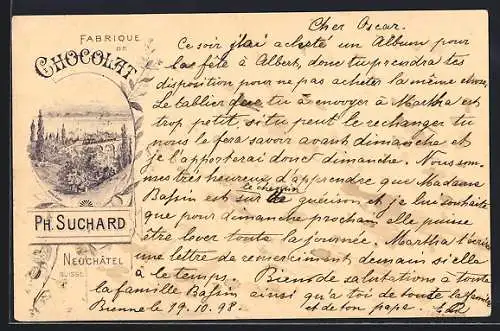 FABRIQUE
DE
CHOCOLAT
PH. SUCHARD
NEUCHÂTEL
SUISSE
Cher Oscar.
Ce soir j'ai acheté un Album pour
la fête à Albert, donc tu prendra tes
disposition pour ne pas acheter la même chose.
Le tablier que tu à envoyer à Martha est
trop petit, si tu peut le rechanger tu
nous le fera savoir avant dimanche et
je l'apporterai donc dimanche. Nous som-
mes très heureux d'apprendre que Madame
le chemin
Bassin est sur de guérison et je lui souhaite
que pour dimanche prochain elle puisse
être lever toute la journée. Martha t'écrira
une lettre de remerciment demain si elle
à le temps. Bien de salutations à toute
la famille Bassin ainsi qu'à toi de toute la famille
Bienne le 19.10.98. et de ton papa